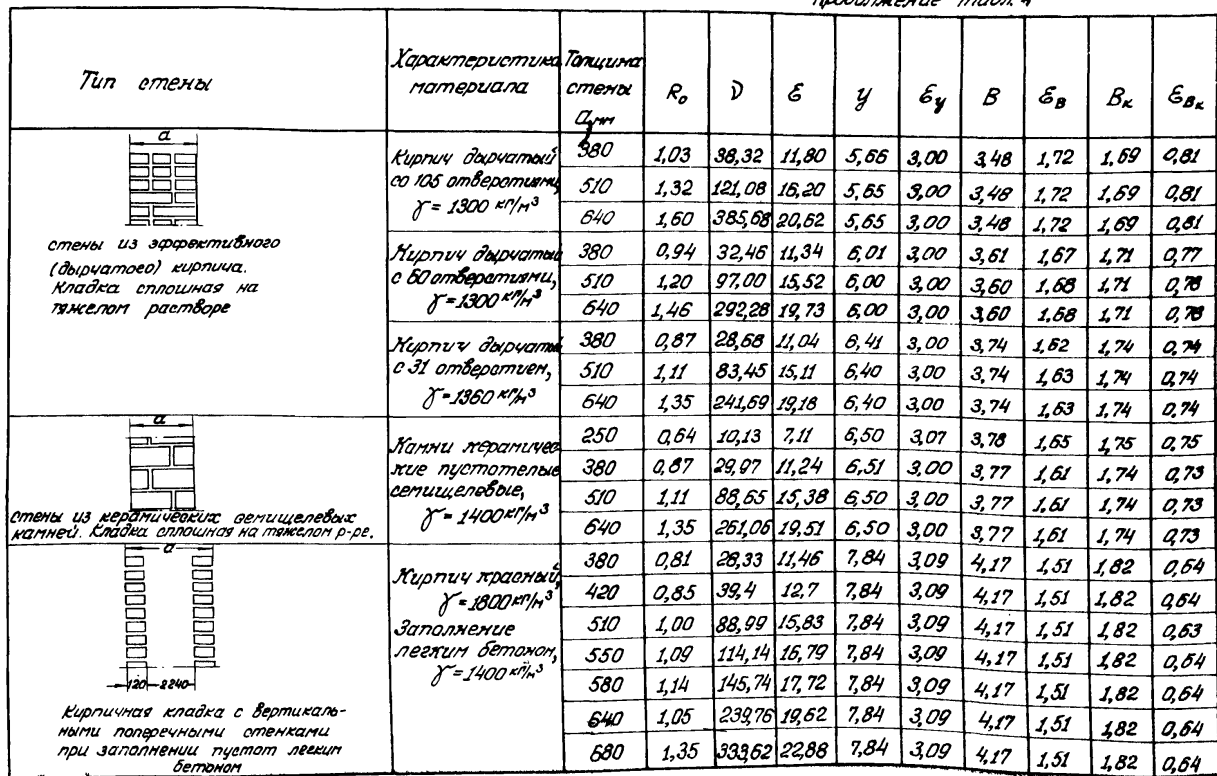 Продолжение табл. 4
Тип стены | Характеристика материала | Толщина стены a, мм | R₀ | ν | ε | y | ε_y | B | ε_B | B_к | ε_Bк
a
стены из эффективного
(дырчатого) кирпича.
Кладка сплошная на
тяжелом растворе
Кирпич дырчатый
со 105 отверстиями,
γ = 1300 кг/м³
380 | 1,03 | 38,32 | 11,80 | 5,66 | 3,00 | 3,48 | 1,72 | 1,69 | 0,81
510 | 1,32 | 121,08 | 16,20 | 5,65 | 3,00 | 3,48 | 1,72 | 1,69 | 0,81
640 | 1,60 | 385,68 | 20,62 | 5,65 | 3,00 | 3,48 | 1,72 | 1,69 | 0,81
Кирпич дырчатый
с 60 отверстиями,
γ = 1300 кг/м³
380 | 0,94 | 32,46 | 11,34 | 6,01 | 3,00 | 3,61 | 1,67 | 1,71 | 0,77
510 | 1,20 | 97,00 | 15,52 | 6,00 | 3,00 | 3,60 | 1,68 | 1,71 | 0,78
640 | 1,46 | 292,28 | 19,73 | 6,00 | 3,00 | 3,60 | 1,68 | 1,71 | 0,78
Кирпич дырчатый
с 31 отверстием,
γ = 1360 кг/м³
380 | 0,87 | 28,68 | 11,04 | 6,41 | 3,00 | 3,74 | 1,62 | 1,74 | 0,74
510 | 1,11 | 83,45 | 15,11 | 6,40 | 3,00 | 3,74 | 1,63 | 1,74 | 0,74
640 | 1,35 | 241,69 | 19,18 | 6,40 | 3,00 | 3,74 | 1,63 | 1,74 | 0,74
a
стены из керамических семищелевых
камней. Кладка сплошная на тяжелом р-ре.
Камни керамичес-
кие пустотелые
семищелевые,
γ = 1400 кг/м³
250 | 0,64 | 10,13 | 7,11 | 6,50 | 3,07 | 3,78 | 1,65 | 1,75 | 0,75
380 | 0,87 | 29,97 | 11,24 | 6,51 | 3,00 | 3,77 | 1,61 | 1,74 | 0,73
510 | 1,11 | 88,65 | 15,38 | 6,50 | 3,00 | 3,77 | 1,61 | 1,74 | 0,73
640 | 1,35 | 261,06 | 19,51 | 6,50 | 3,00 | 3,77 | 1,61 | 1,74 | 0,73
a
120 ≥240
Кирпичная кладка с вертикаль-
ными поперечными стенками
при заполнении пустот легким
бетоном
Кирпич красный,
γ = 1800 кг/м³
Заполнение
легким бетоном,
γ = 1400 кг/м³
380 | 0,81 | 28,33 | 11,46 | 7,84 | 3,09 | 4,17 | 1,51 | 1,82 | 0,64
420 | 0,85 | 39,4 | 12,7 | 7,84 | 3,09 | 4,17 | 1,51 | 1,82 | 0,64
510 | 1,00 | 88,99 | 15,83 | 7,84 | 3,09 | 4,17 | 1,51 | 1,82 | 0,63
550 | 1,09 | 114,14 | 16,79 | 7,84 | 3,09 | 4,17 | 1,51 | 1,82 | 0,64
580 | 1,14 | 145,74 | 17,72 | 7,84 | 3,09 | 4,17 | 1,51 | 1,82 | 0,64
640 | 1,05 | 239,76 | 19,62 | 7,84 | 3,09 | 4,17 | 1,51 | 1,82 | 0,64
680 | 1,35 | 333,62 | 22,88 | 7,84 | 3,09 | 4,17 | 1,51 | 1,82 | 0,64